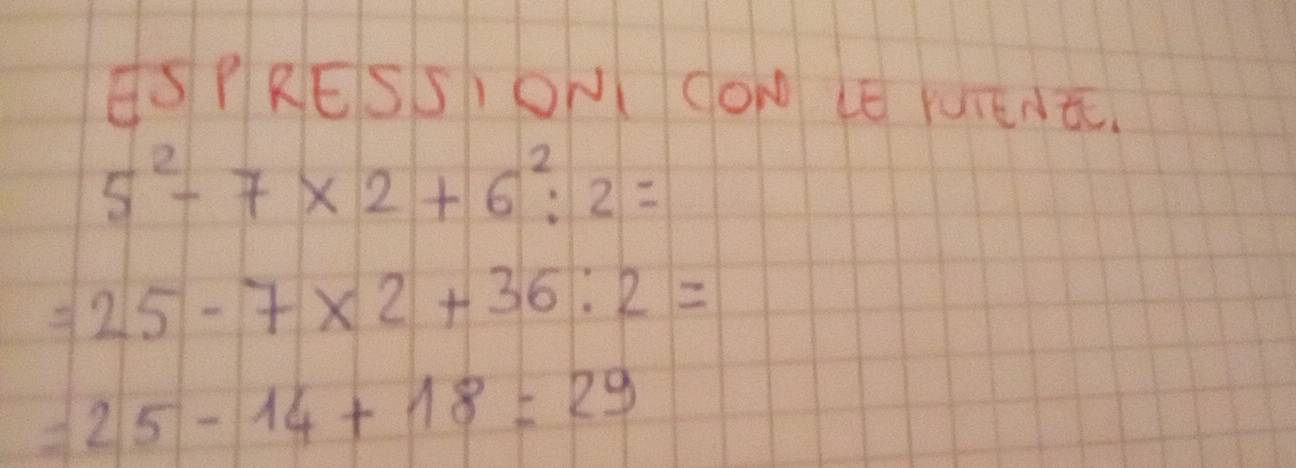 ESPRESSIONI CON LE POTENZE.
5² - 7 × 2 + 6² : 2 =
= 25 - 7 × 2 + 36 : 2 =
= 25 - 14 + 18 = 29